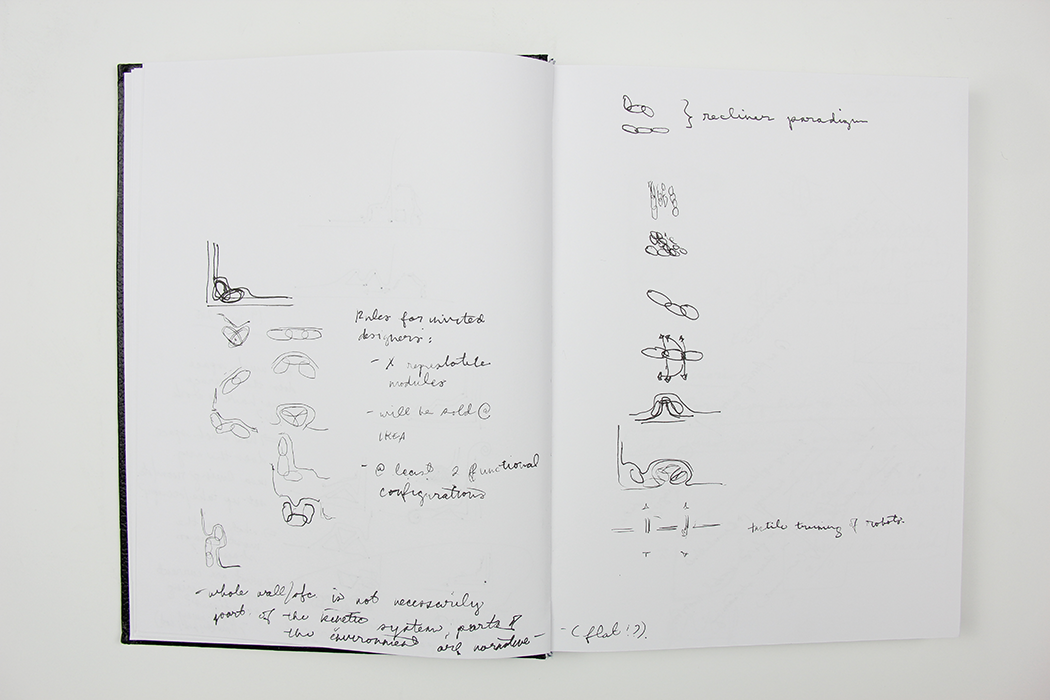 Rules for invited
designers:
- X repeatable
modules
- will be sold @
IKEA
- @ least 2 functional
configurations
- whole wall/ofc. is not necessarily
part of the kinetic system, parts of
the environment are narrative -
} recliner paradigm
tactile training of robots.
- (flat!?).